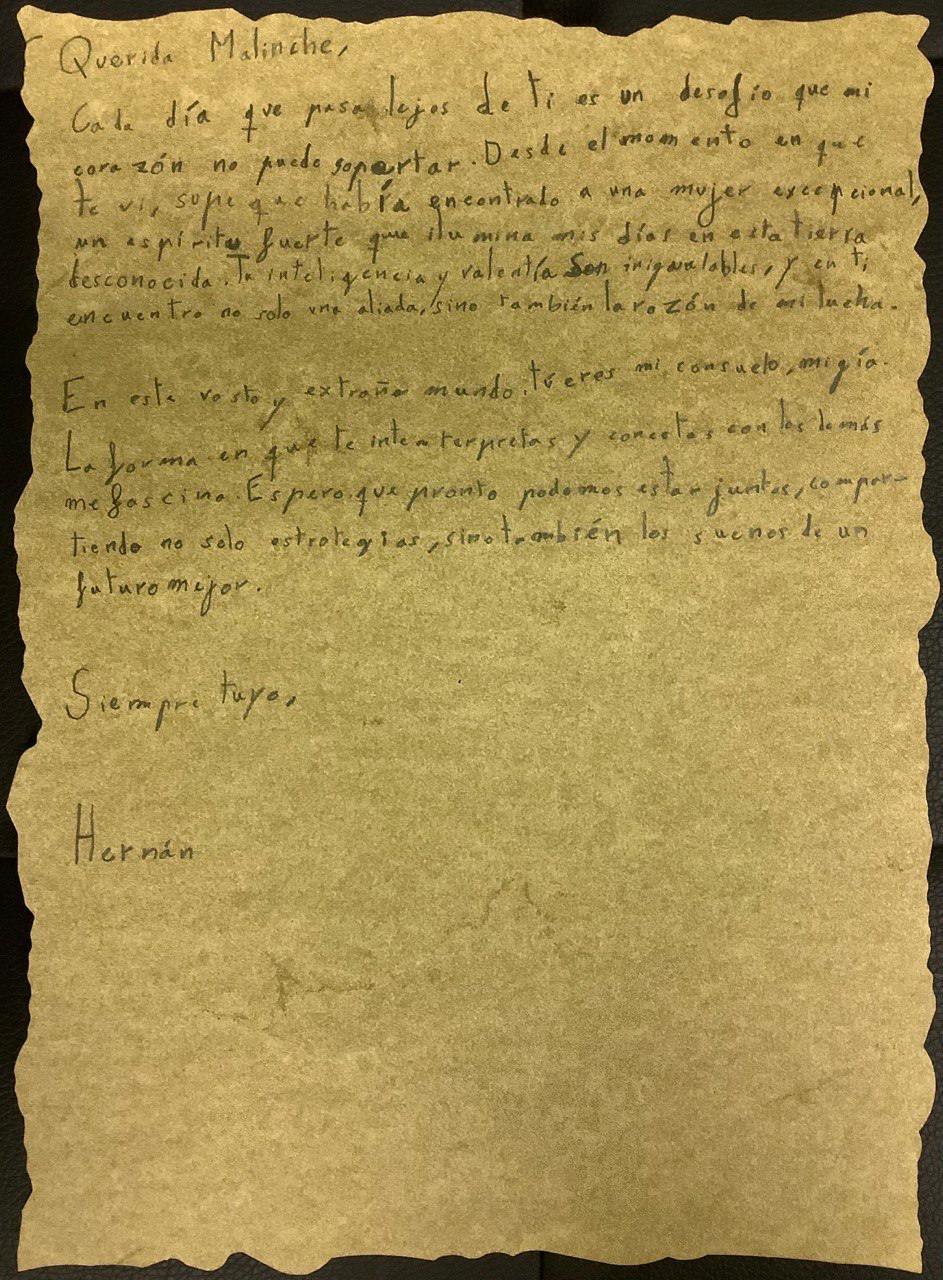 Querida Malinche,
Cada día que pasa lejos de ti es un desafío que mi
corazón no puede soportar. Desde el momento en que
te vi, supe que había encontrado a una mujer excepcional,
un espíritu fuerte que ilumina mis días en esta tierra
desconocida. Tu inteligencia y valentía son inigualables, y en ti
encuentro no solo una aliada, sino también la razón de mi lucha.
En este vasto y extraño mundo, tú eres mi consuelo, mi gía.
La forma en que te interpretas y conectas con los demás
me fascina. Espero que pronto podamos estar juntos, compar-
tiendo no solo estrategias, sino también los suenos de un
futuro mejor.
Siempre tuyo,
Hernán